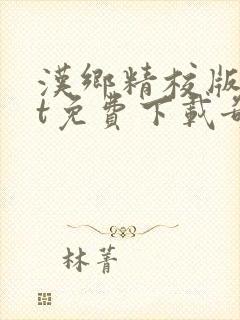 漢鄉精校版
t免費下載
林菁